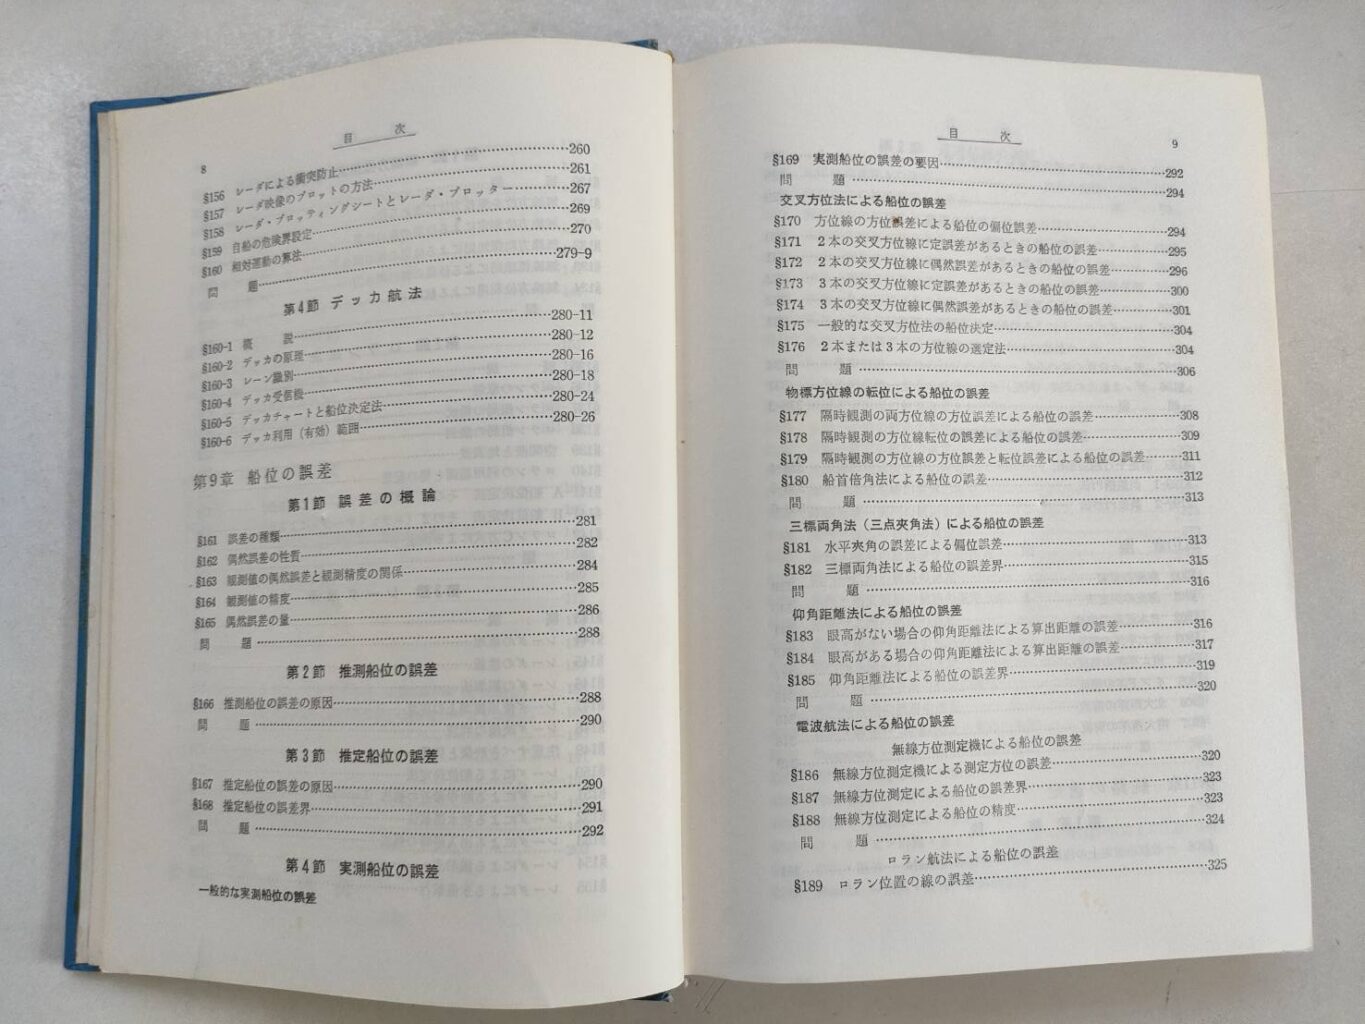 8
目　次
§156 レーダによる衝突防止……260
§157 レーダ映像のプロットの方法……261
§158 レーダ・プロッティングシートとレーダ・プロッター……267
§159 自船の危険界設定……269
§160 相対運動の算法……270
問　題……279-9
第4節 デッカ航法
§160-1 概　説……280-11
§160-2 デッカの原理……280-12
§160-3 レーン識別……280-16
§160-4 デッカ受信機……280-18
§160-5 デッカチャートと船位決定法……280-24
§160-6 デッカ利用（有効）範囲……280-26
第9章 船位の誤差
第1節 誤差の概論
§161 誤差の種類……281
§162 偶然誤差の性質……282
§163 観測値の偶然誤差と観測精度の関係……284
§164 観測値の精度……285
§165 偶然誤差の量……286
問　題……288
第2節 推測船位の誤差
§166 推測船位の誤差の原因……288
問　題……290
第3節 推定船位の誤差
§167 推定船位の誤差の原因……290
§168 推定船位の誤差界……291
問　題……292
第4節 実測船位の誤差
一般的な実測船位の誤差
目　次
9
§169 実測船位の誤差の要因……292
問　題……294
交叉方位法による船位の誤差
§170 方位線の方位誤差による船位の偏位誤差……294
§171 2本の交叉方位線に定誤差があるときの船位の誤差……295
§172 2本の交叉方位線に偶然誤差があるときの船位の誤差……296
§173 3本の交叉方位線に定誤差があるときの船位の誤差……300
§174 3本の交叉方位線に偶然誤差があるときの船位の誤差……301
§175 一般的な交叉方位法の船位決定……304
§176 2本または3本の方位線の選定法……304
問　題……306
物標方位線の転位による船位の誤差
§177 隔時観測の両方位線の方位誤差による船位の誤差……308
§178 隔時観測の方位線転位の誤差による船位の誤差……309
§179 隔時観測の方位線の方位誤差と転位誤差による船位の誤差……311
§180 船首倍角法による船位の誤差……312
問　題……313
三標両角法（三点夾角法）による船位の誤差
§181 水平夾角の誤差による偏位誤差……313
§182 三標両角法による船位の誤差界……315
問　題……316
仰角距離法による船位の誤差
§183 眼高がない場合の仰角距離法による算出距離の誤差……316
§184 眼高がある場合の仰角距離法による算出距離の誤差……317
§185 仰角距離法による船位の誤差界……319
問　題……320
電波航法による船位の誤差
無線方位測定機による船位の誤差
§186 無線方位測定機による測定方位の誤差……320
§187 無線方位測定による船位の誤差界……323
§188 無線方位測定による船位の精度……323
問　題……324
ロラン航法による船位の誤差
§189 ロラン位置の線の誤差……325